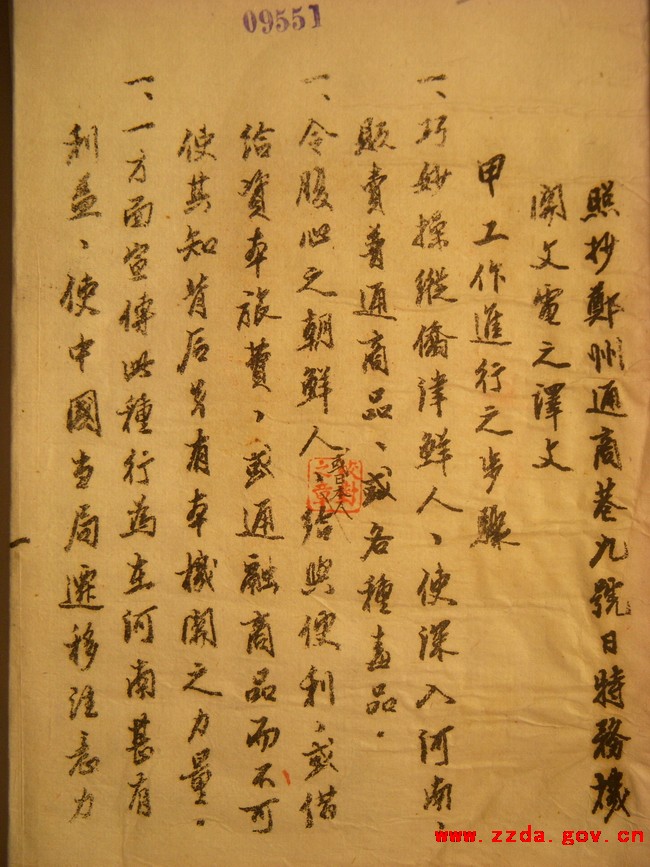 09551
照抄鄭州通商巷九號日特務機
關文電之譯文
甲工作進行之步驟
一、巧妙操縱僑津鮮人、使深入河南、
販賣普通商品、或各種毒品.
一、令腹心之朝鮮人、給與便利、或借
校對之章
給資本旅費、或通融商品而不可
使其知背后另有本機關之力量.
一、一方面宣傳此種行為在河南甚有
利益、使中國当局遷移注意力
www.zzda.gov.cn